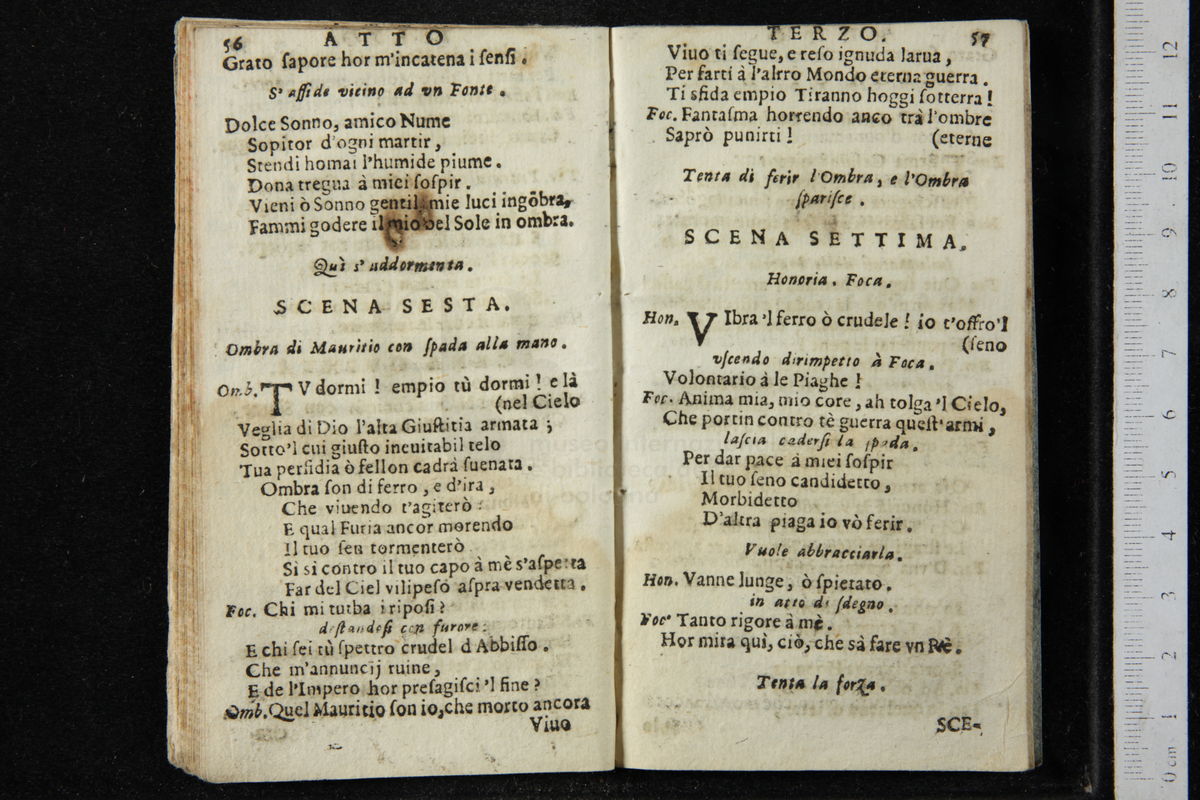 56 ATTO
Grato ſapore hor m'incatena i ſenſi.
S'aſſide vicino ad vn Fonte.
Dolce Sonno, amico Nume
Sopitor d'ogni martir,
Stendi homai l'humide piume.
Dona tregua à miei ſoſpir.
Vieni ò Sonno gentil, mie luci ingõbra,
Fammi godere il mio bel Sole in ombra.
Quì s'addormenta.
SCENA SESTA.
Ombra di Mauritio con ſpada alla mano.
Omb. TV dormi! empio tù dormi! e là
(nel Cielo
Veglia di Dio l'alta Giuſtitia armata;
Sotto'l cui giuſto ineuitabil telo
Tua perfidia ò fellon cadrà ſuenata.
Ombra ſon di ferro, e d'ira,
Che viuendo t'agiterò:
E qual Furia ancor morendo
Il tuo ſen tormenterò
Si si contro il tuo capo à mè s'aſpetta
Far del Ciel vilipeſo aſpra vendetta.
Foc. Chi mi turba i ripoſi?
deſtandoſi con furore:
E chi ſei tù ſpettro crudel d Abbiſſo.
Che m'annuncij ruine,
E de l'Impero hor preſagiſci 'l fine?
Omb. Quel Mauritio ſon io, che morto ancora
Viuo
TERZO. 57
Viuo ti ſegue, e reſo ignuda larua,
Per farti à l'alrro Mondo eterna guerra.
Ti sfida empio Tiranno hoggi ſotterra!
Foc. Fantaſma horrendo anco trà l'ombre
Saprò punirti! (eterne
Tenta di ferir l'Ombra, e l'Ombra
ſpariſce.
SCENA SETTIMA.
Honoria. Foca.
Hon. VIbra 'l ferro ò crudele! io t'offro'l
(ſeno
vſcendo dirimpetto à Foca.
Volontario à le Piaghe!
Foc. Anima mia, mio core, ah tolga 'l Cielo,
Che portin contro tè guerra queſt'armi,
laſcia caderſi la ſpada.
Per dar pace à miei ſoſpir
Il tuo ſeno candidetto,
Morbidetto
D'altra piaga io vò ferir.
Vuole abbracciarla.
Hon. Vanne lunge, ò ſpietato.
in atto di ſdegno.
Foc. Tanto rigore à mè.
Hor mira quì, ciò, che sà fare vn Rè.
Tenta la forza.
SCE-
museo internazionale
e biblioteca della
di bologna
0 cm 1 2 3 4 5 6 7 8 9 10 11 12